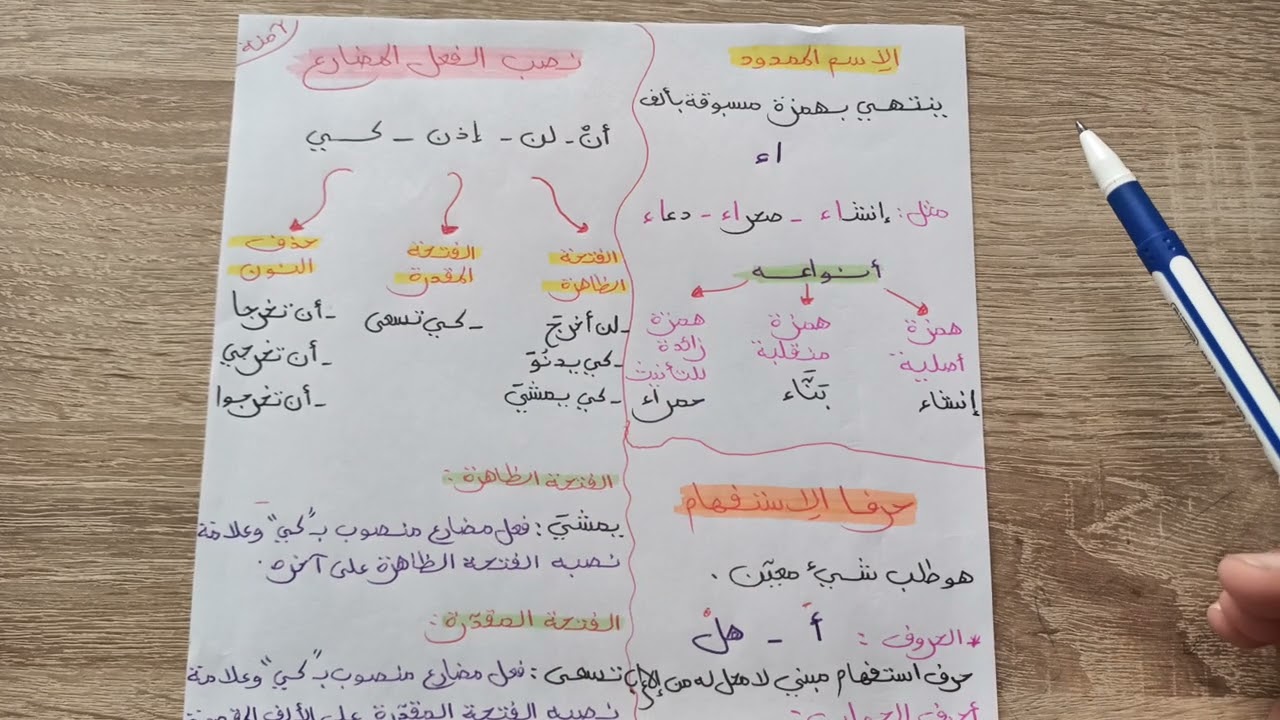 الاسم الممدود
ينتهي بهمزة مسبوقة بألف
اء
مثل: إنشاء - صحراء - دعاء
أنواعه
همزة أصلية
إنشاء
همزة منقلبة
بَنَّاء
همزة زائدة للتأنيث
حمراء
حرفا الاستفهام
هو طلب شيء معيّن.
* الحروف: أَ - هلْ
حرف استفهام مبني لا محل له من الإعراب
أحرف الجواب:
آمنة
نصب الفعل المضارع
أنْ - لن - إذن - كي
الفتحة الظاهرة
- لن أخرجَ
- كي يدنُوَ
- كي يمشيَ
الفتحة المقدرة
- كي تسعى
حذف النون
- أن تخرجا
- أن تخرجي
- أن تخرجوا
الفتحة الظاهرة:
يمشيَ: فعل مضارع منصوب بـ"كي" وعلامة
نصبه الفتحة الظاهرة على آخره.
الفتحة المقدّرة:
تسعى: فعل مضارع منصوب بـ"كي" وعلامة
نصبه الفتحة المقدّرة على الألف